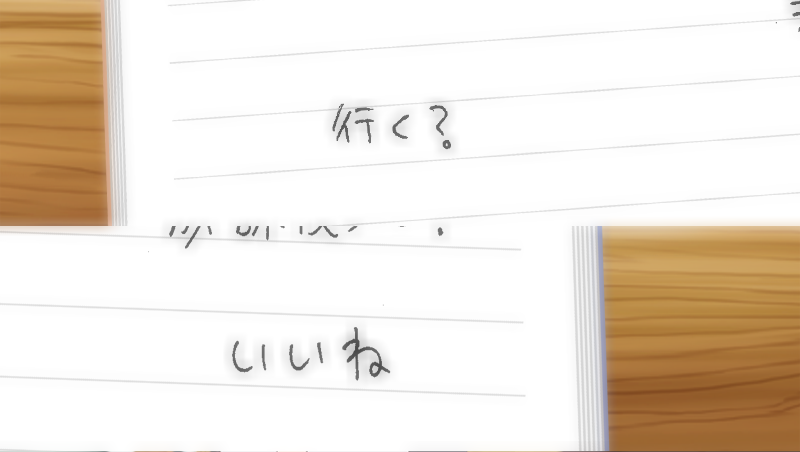 行く?
いいね